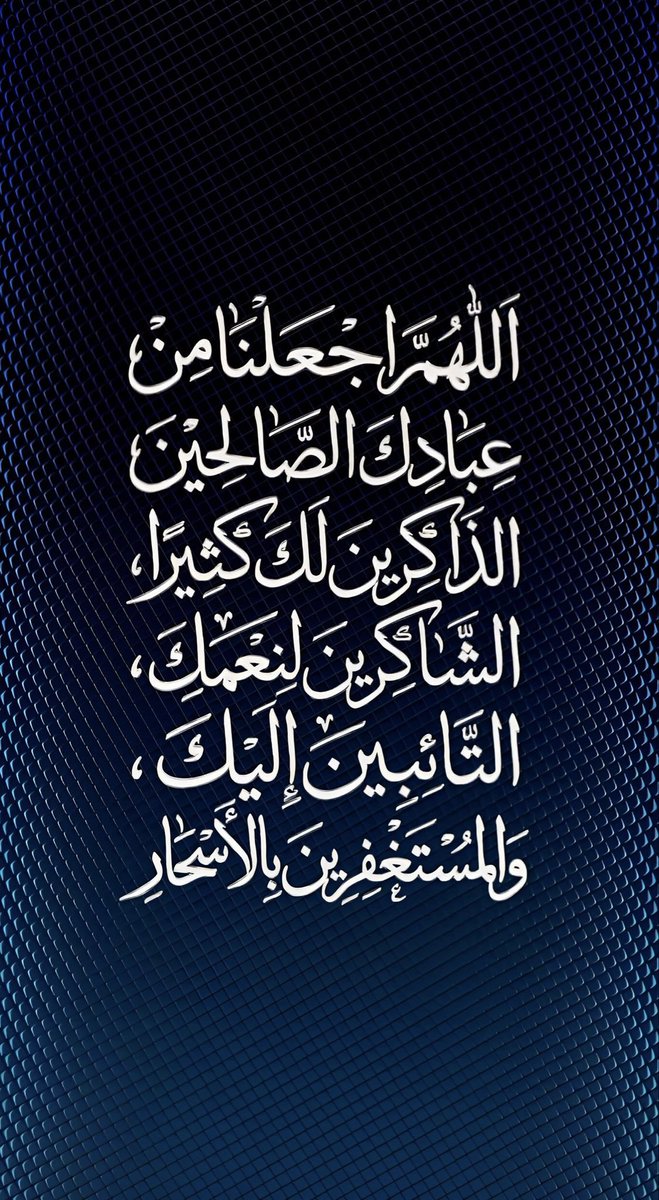 اَللّٰهُمَّ اجْعَلْنَا مِنْ
عِبَادِكَ الصَّالِحِيْنَ
الذَاكِرِينَ لَكَ كَثِيرًا،
الشَّاكِرِينَ لِنِعَمِكَ،
التَّائِبِينَ إِلَيْكَ،
وَالمُسْتَغْفِرِينَ بِالأَسْحَارِ